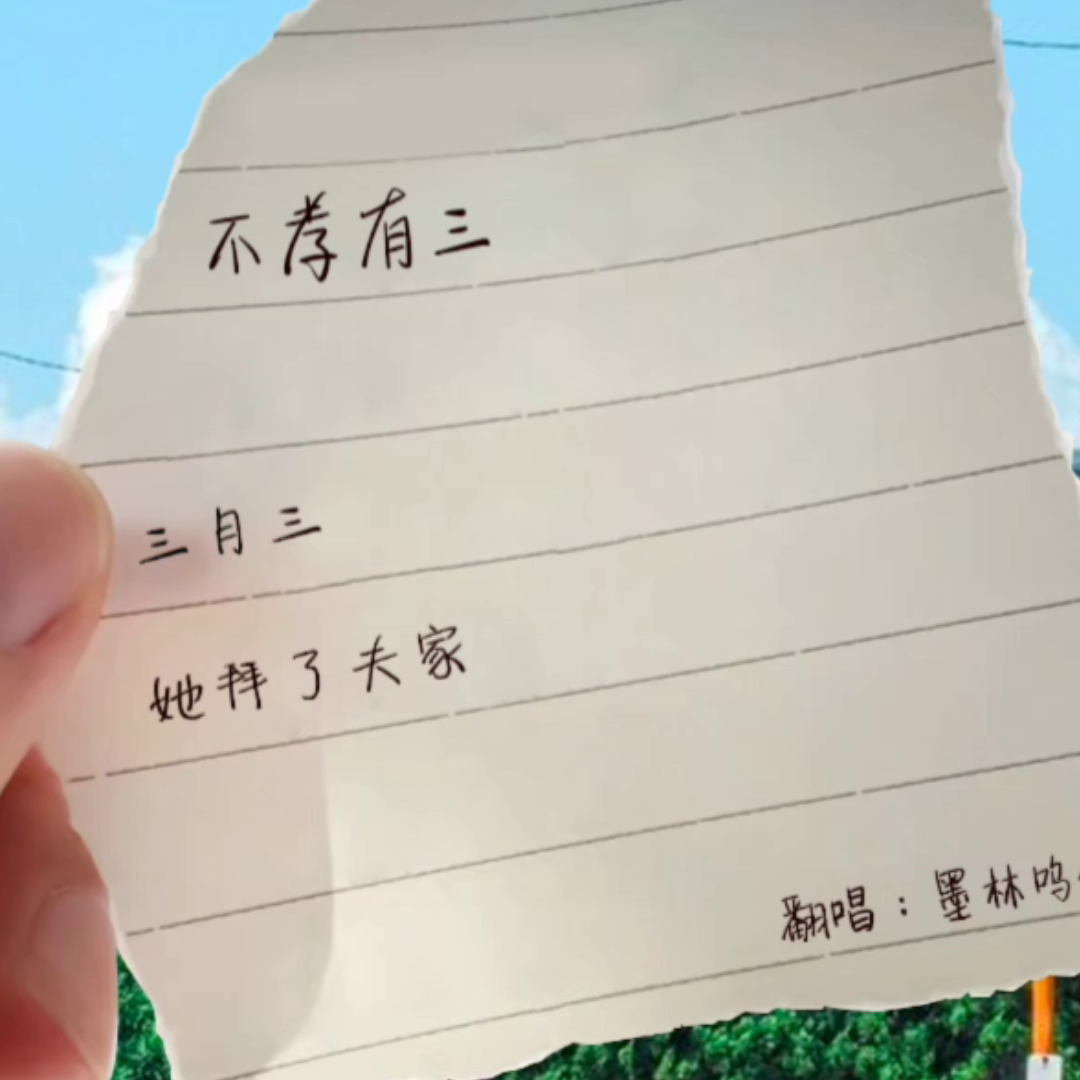 不孝有三
三月三
她拜了夫家
翻唱：墨林呜